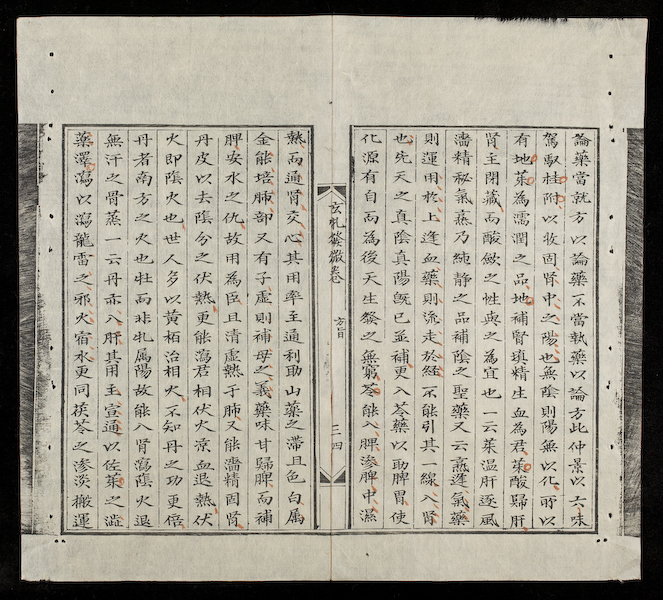 論藥當就方以論藥不當執藥以論方此仲景以六味
駕馭桂附以收固腎中之陽也無陰則陽無以化所以
有地茱為濡潤之品地補腎填精生血為君茱酸歸肝
腎主閉藏而酸斂之性與之為宜也一云茱溫肝逐風
濇精秘氣蒸乃純静之品補陰之聖藥又云熹逢氣藥
則運用於上逢血藥則流走於經不能引其一線入腎
也先天之真陰真陽旣已並補更入苓藥以助脾胃使
化源有自而為後天生發之無窮苓能入脾滲脾中濕
玄机發微卷 方旨 三四
熱而通腎交心其用率至通利助山藥之滯且色白属
金能培肺部又有子虛則補母之義藥味甘歸脾而補
脾安水之仇故用為臣且清虛熱于肺又能濇精固腎
丹皮以去陰分之伏熱更能瀉君相伏火凉血退熱伏
火即陰火也世人多以黄柏治相火不知丹之功更倍
丹者南方之火也牡而非牝属陽故能入腎瀉陰火退
無汗之骨蒸一云丹赤入肝其用主宣通以佐茱之澁
藥澤瀉以瀉龍雷之邪火宿水更同茯苓之滲淡搬運